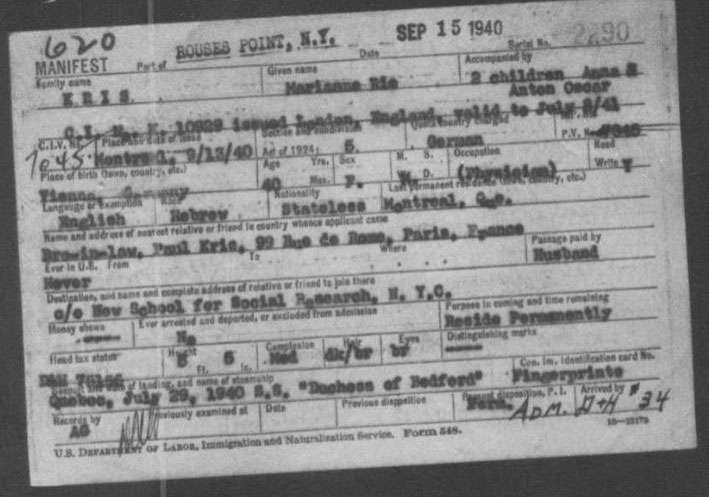 620 ROUSES POINT, N.Y. SEP 15 1940 2290
MANIFEST Port of Date Serial No.
Family name Given name Accompanied by
KRIS Marianne Rie 2 children Anna &
Anton Oscar
C.I. 10929 issued London, England, valid to July 2/41
C.I.V. No. Place and date of issue Section and subdivision P.V. No.
7045 Montreal, 9/13/40 Act of 1924: 5. German
Place of birth (town, country, etc.) Age Yrs. Sex M. S. Occupation Read
Vienna, Germany 40 Mos. F. W. D. (Physician) Write Y
Language or exemption Race Nationality Last permanent residence (town, country, etc.)
English Hebrew Stateless Montreal, Que.
Name and address of nearest relative or friend in country whence applicant came
Bro-in-law, Paul Kris, 99 Rue de Rome, Paris, France Passage paid by
Ever in U.S. From To Where Husband
Never
Destination, and name and complete address of relative or friend to join there
c/o New School for Social Research, N. Y.C. Purpose in coming and time remaining
Money shown Ever arrested and deported, or excluded from admission Reside Permanently
No Distinguishing marks
Head tax status Height Complexion Hair Eyes
5 Ft. 5 In. Med dk/br br
Con. Im. Identification card No.
of landing, and name of steamship
Quebec, July 29, 1940 S.S. "Duchess of Bedford" Fingerprints
Records by Previously examined at Date Previous disposition Present disposition, P.I. Arrived by
AG Perm. ADM. D+H #34
U.S. DEPARTMENT OF LABOR, Immigration and Naturalization Service. Form 548.